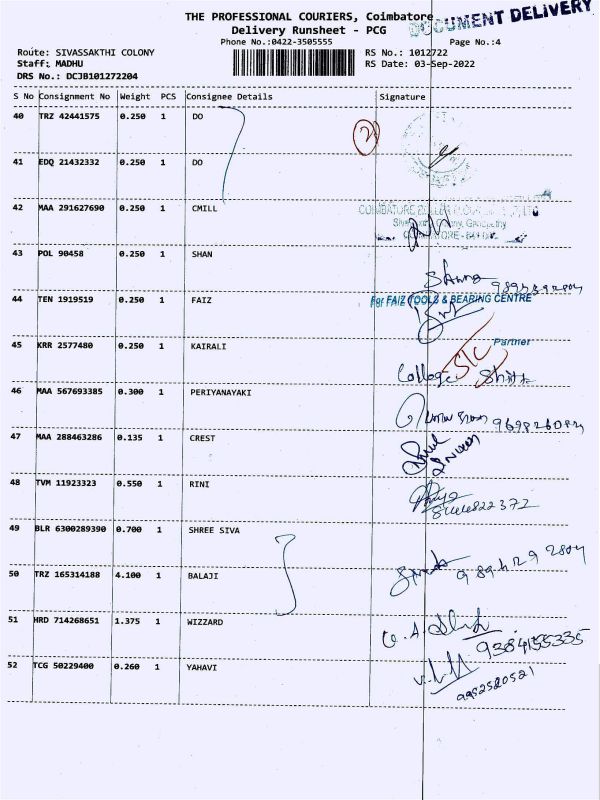 THE PROFESSIONAL COURIERS, Coimbatore
DOCUMENT DELIVERY
Delivery Runsheet - PCG
Phone No.:0422-3505555 Page No.:4
Route: SIVASSAKTHI COLONY RS No.: 1012722
Staff: MADHU RS Date: 03-Sep-2022
DRS No.: DCJB101272204
S No Consignment No Weight PCS Consignee Details Signature
40 TRZ 42441575 0.250 1 DO
2
41 EDQ 21432332 0.250 1 DO
42 MAA 291627690 0.250 1 CMILL
COIMBATORE
43 POL 90458 0.250 1 SHAN
44 TEN 1919519 0.250 1 FAIZ
For FAIZ TOOLS & BEARING CENTRE
45 KRR 2577480 0.250 1 KAIRALI
Partner
College S/C
46 MAA 567693385 0.300 1 PERIYANAYAKI
47 MAA 288463286 0.135 1 CREST
48 TVM 11923323 0.550 1 RINI
49 BLR 6300289390 0.700 1 SHREE SIVA
50 TRZ 165314188 4.100 1 BALAJI
51 HRD 714268651 1.375 1 WIZZARD
9384155335
52 TCG 50229400 0.260 1 YAHAVI
9952520521